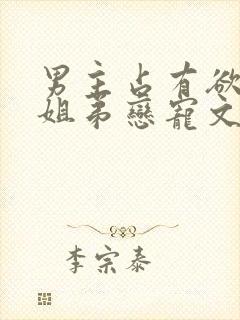 男主占有欲
姐弟戀寵文
李宗泰